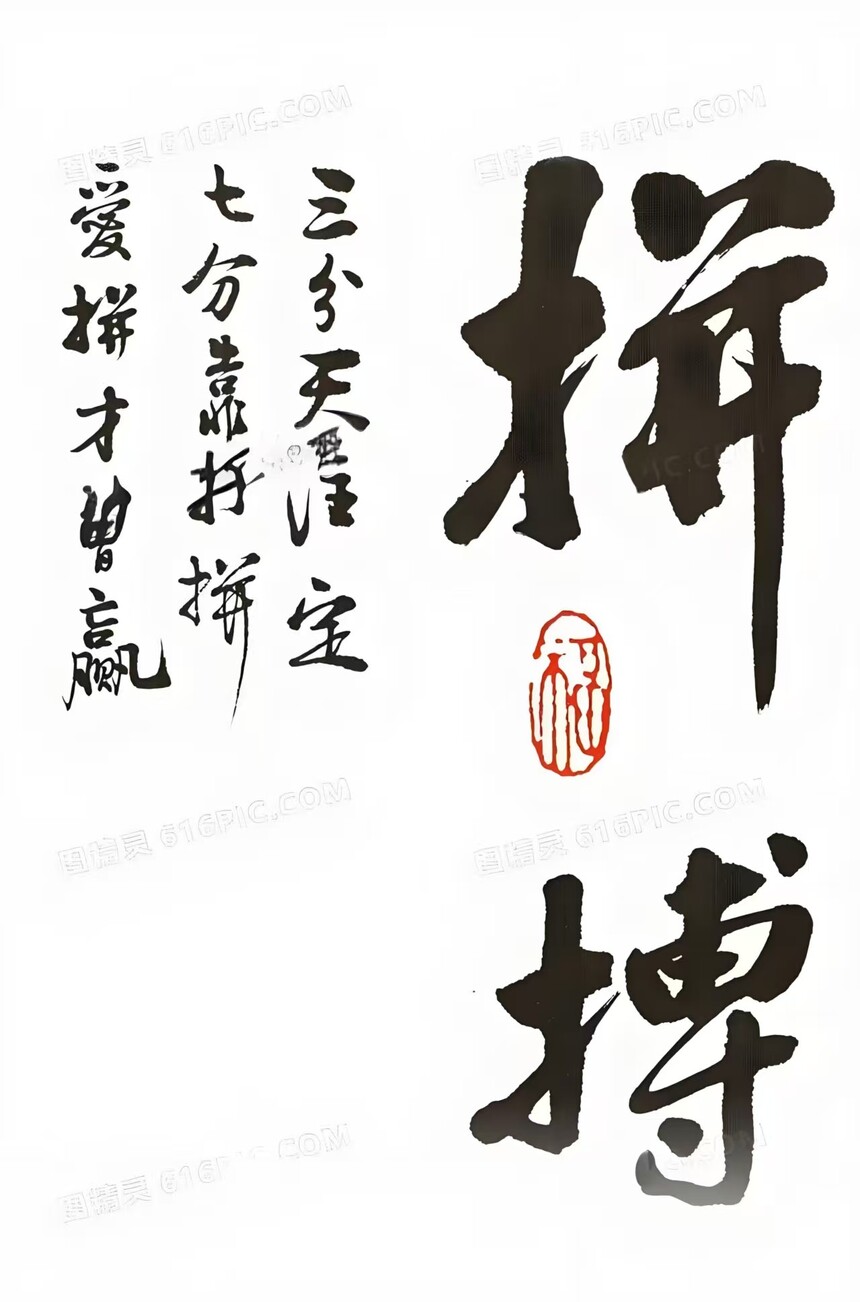 拼搏
三分天注定
七分靠打拼
愛拼才會贏
图精灵 616PIC.COM
图精灵 616PIC.COM
图精灵 616PIC.COM
图精灵 616PIC.COM
图精灵 616PIC.COM